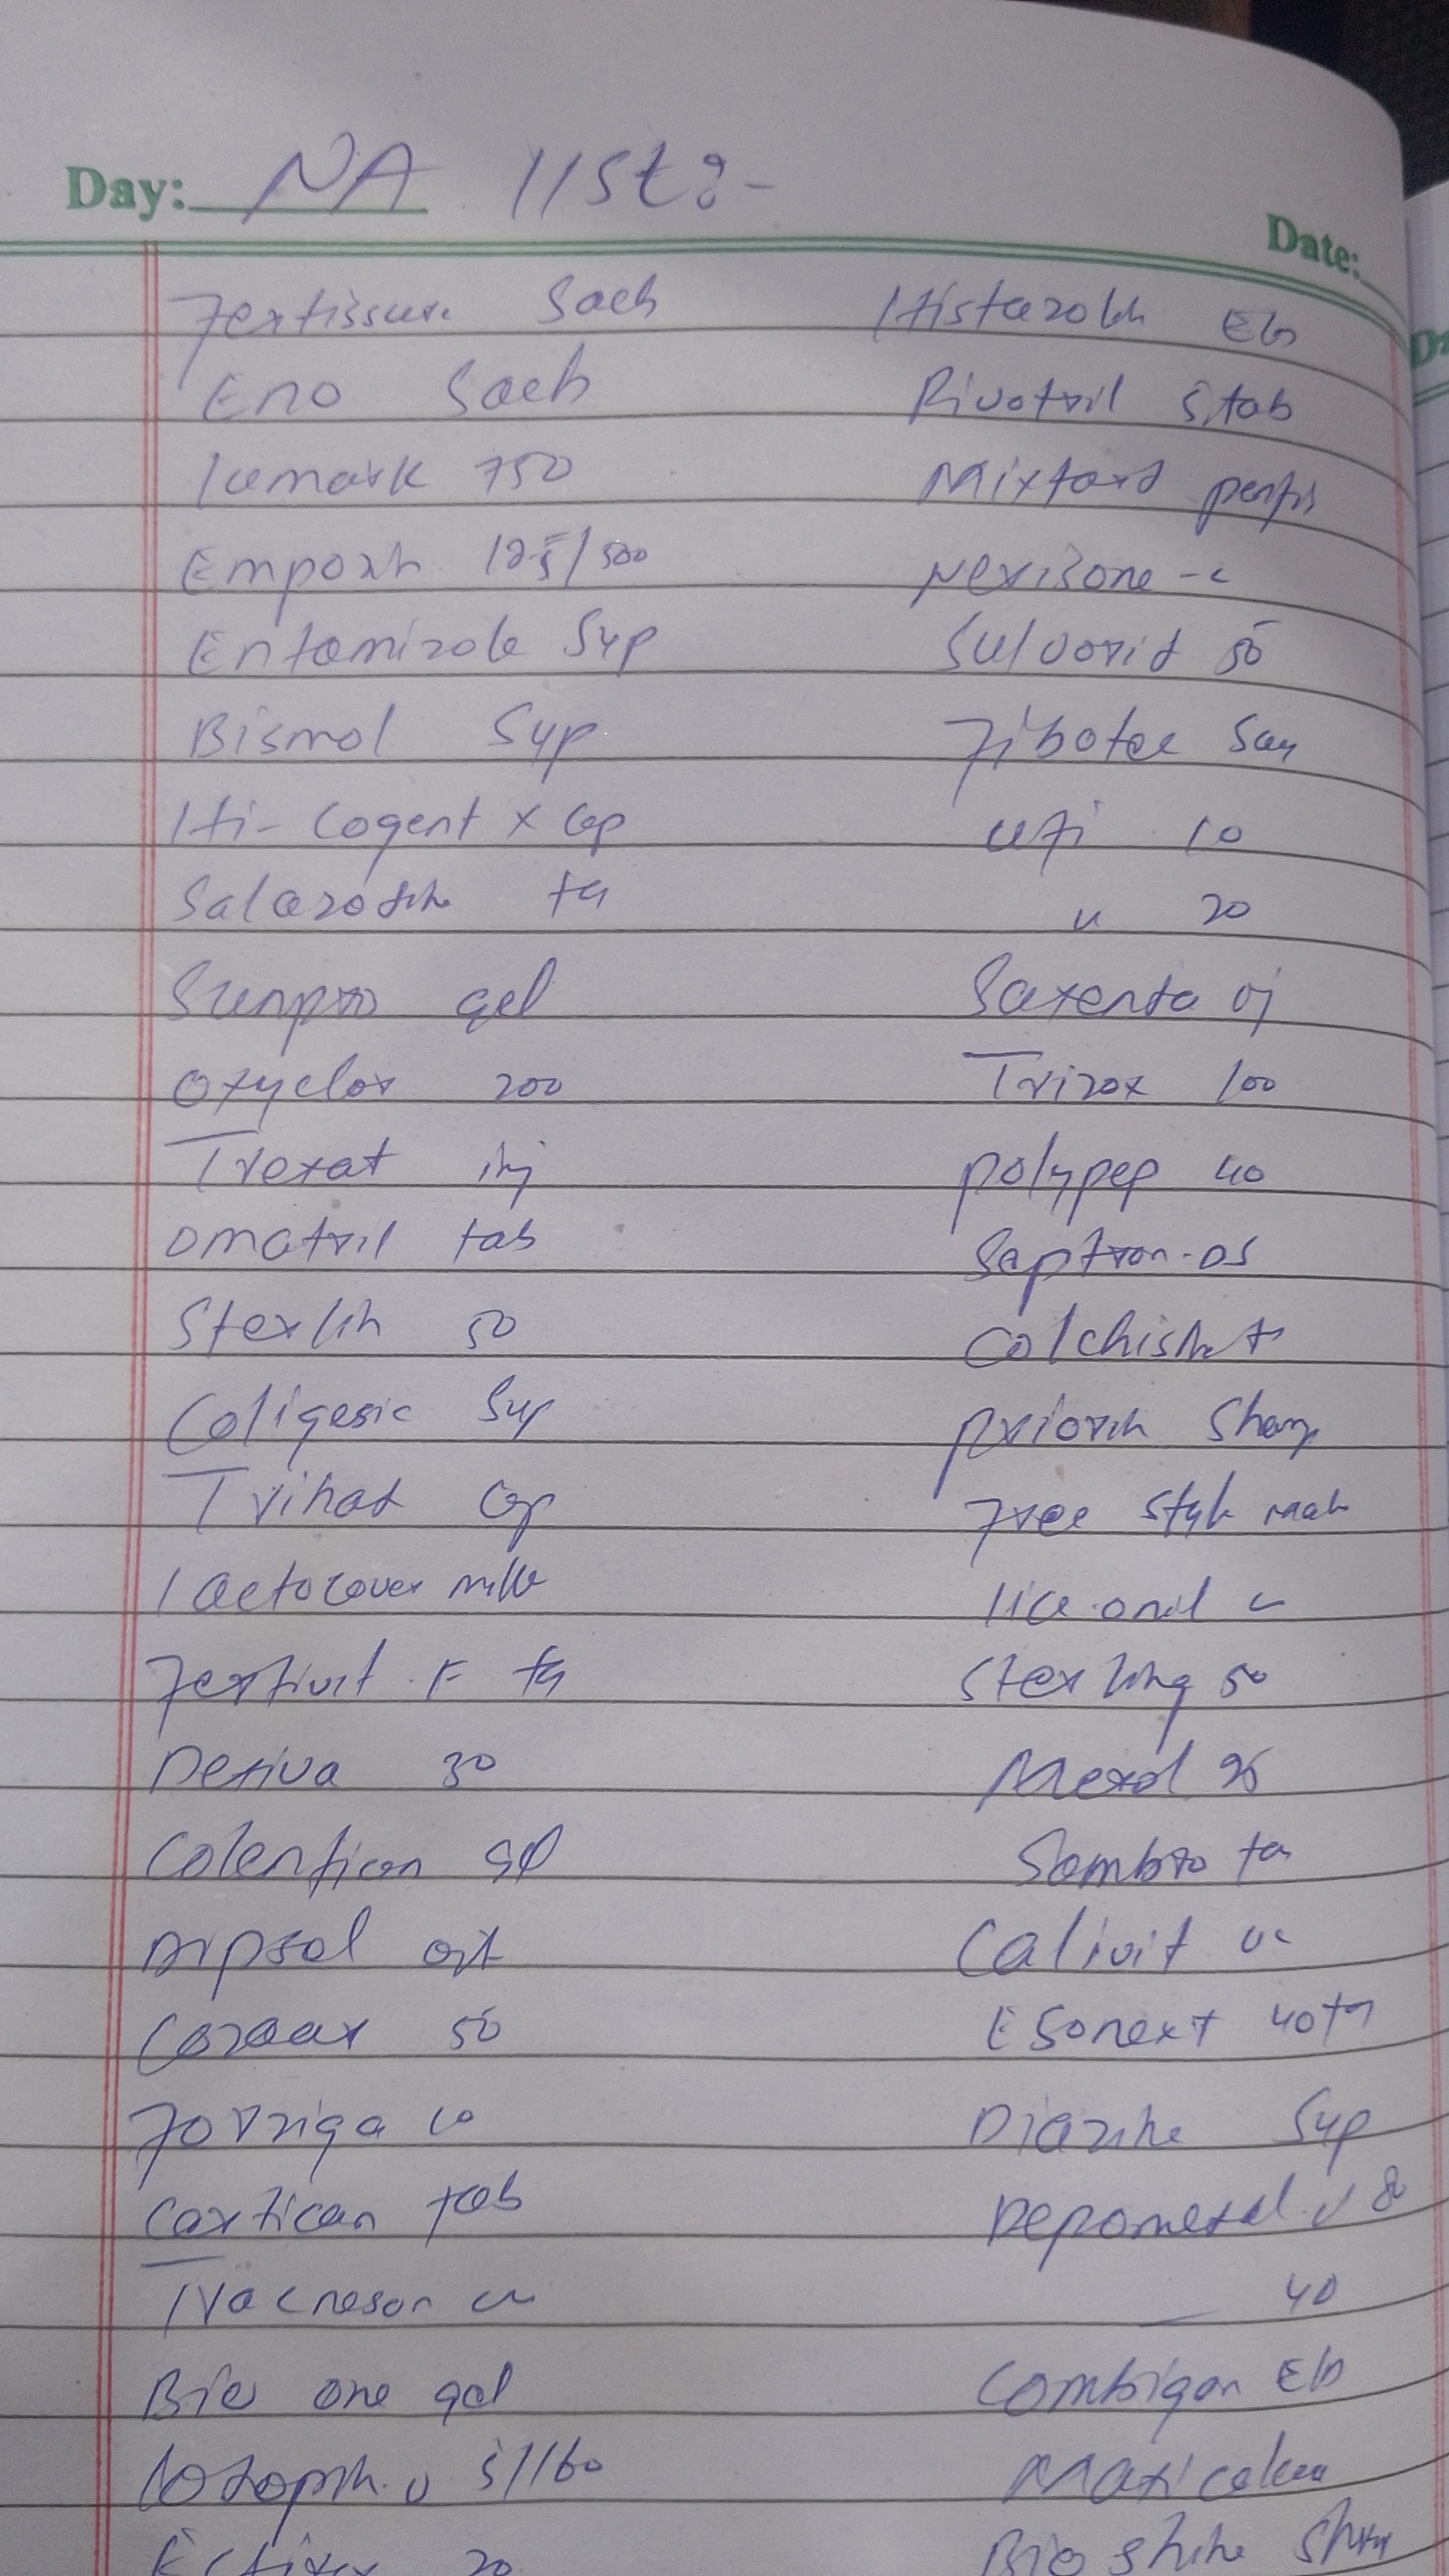 Day: NA list:-
Date:
Fertissure Sach
Eno Sach
Icemark 750
Empozin 12.5/500
Entamizole Syp
Bismol Syp
Hi-Cogent x Cap
Salazodine ta
Sunpro gel
Oxyclor 200
Trexat inj
Omatril tab
Sterlin 50
Coligesic Syp
Trihat Cap
lactocover milk
Fertivit F ta
Dexiva 30
Colenticon gel
Dipsal oint
Cozaar 50
Forxiga 10
Cortican tab
Tracneson
Bio one gel
5/160
20
Histazolin E/D
Rivotril 5 tab
Mixtard penfis
Nexisone -c
Sulvorid 50
Fibotec San
ufi 10
" 20
Saxenta inj
Trizox 100
Polypep 40
Septran-DS
Colchisin
Priorin Shamp
Free style
lice onil
Sterling 50
Mexol 25
Sombro ta
Calivit
Esonext 40 ta
Diazine Syp
Depomedrol
40
Combigan E/D
Maxi
Bio shine